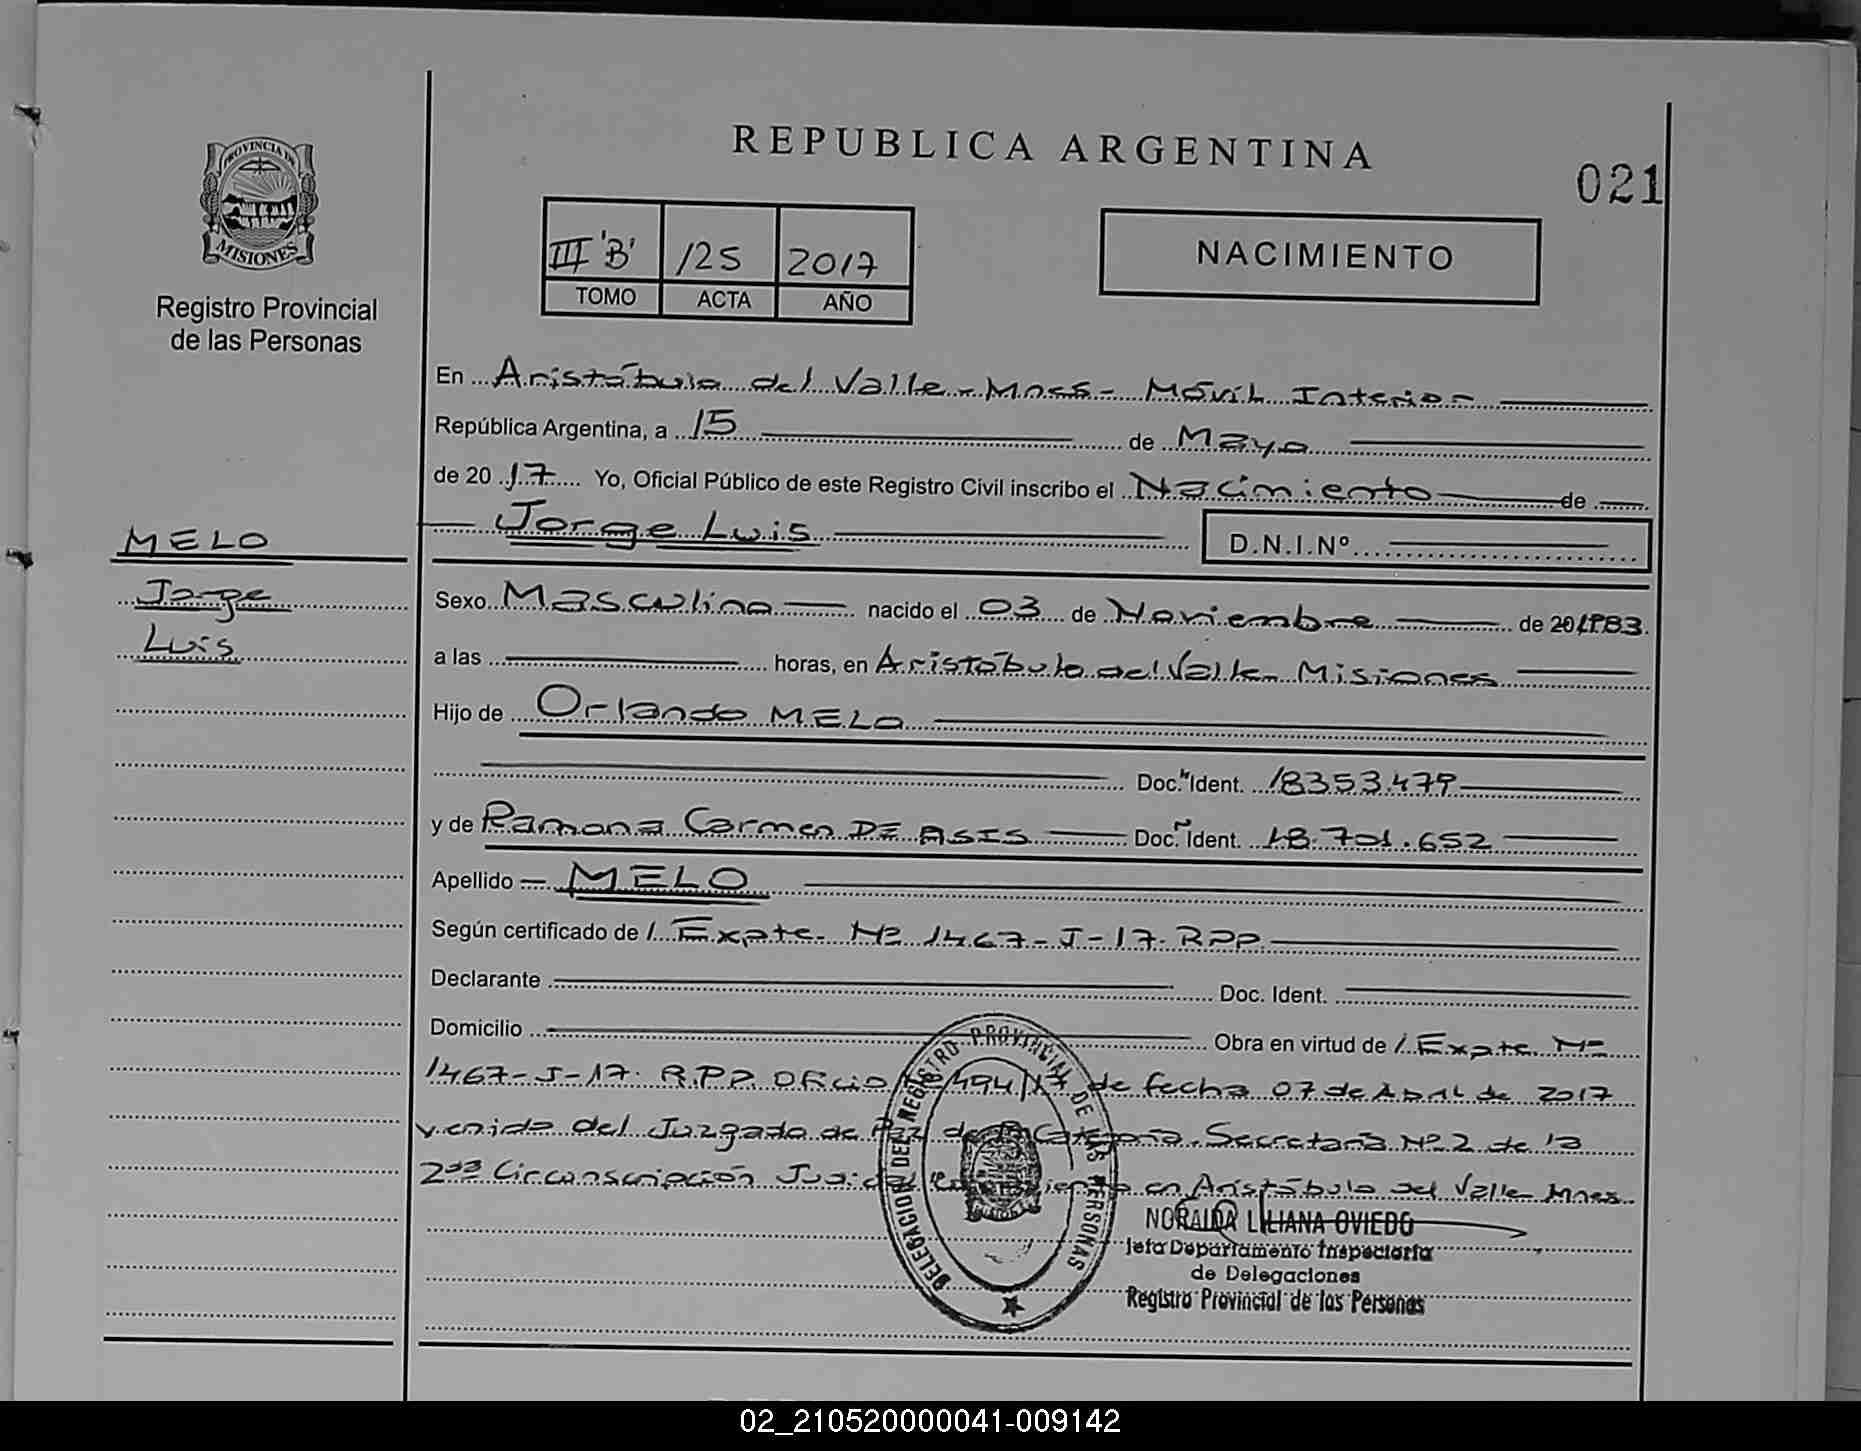 REPUBLICA ARGENTINA
021
PROVINCIA DE
MISIONES
Registro Provincial
de las Personas
III "B" 125 2017
TOMO ACTA AÑO
NACIMIENTO
En Aristóbulo del Valle - Mnes - Móvil Interior
República Argentina, a 15 de Mayo
de 20 17 Yo, Oficial Público de este Registro Civil inscribo el Nacimiento de
Jorge Luis D.N.I.Nº
MELO
Jorge
Luis
Sexo Masculino nacido el 03 de Noviembre de 20 1983
a las horas, en Aristóbulo del Valle Misiones
Hijo de Orlando MELO
Doc. Ident. 18353.479
y de Ramona Carmen DE ASIS Doc. Ident. 18.701.652
Apellido MELO
Según certificado de Expte. Nº 1467-J-17. RPP
Declarante Doc. Ident.
Domicilio Obra en virtud de Expte Nº
1467-J-17. R.P.P. Oficio 494/17 de fecha 07 de Abril de 2017
venido del Juzgado de Paz de Categoría Secretaría Nº 2 de la
2da Circunscripción Judicial en Aristóbulo del Valle Mnes.
DELEGACION DEL REGISTRO PROVINCIAL DE LAS PERSONAS
NORAIDA LILIANA OVIEDO
Jefa Departamento Inspectoría
de Delegaciones
Registro Provincial de las Personas
02_210520000041-009142